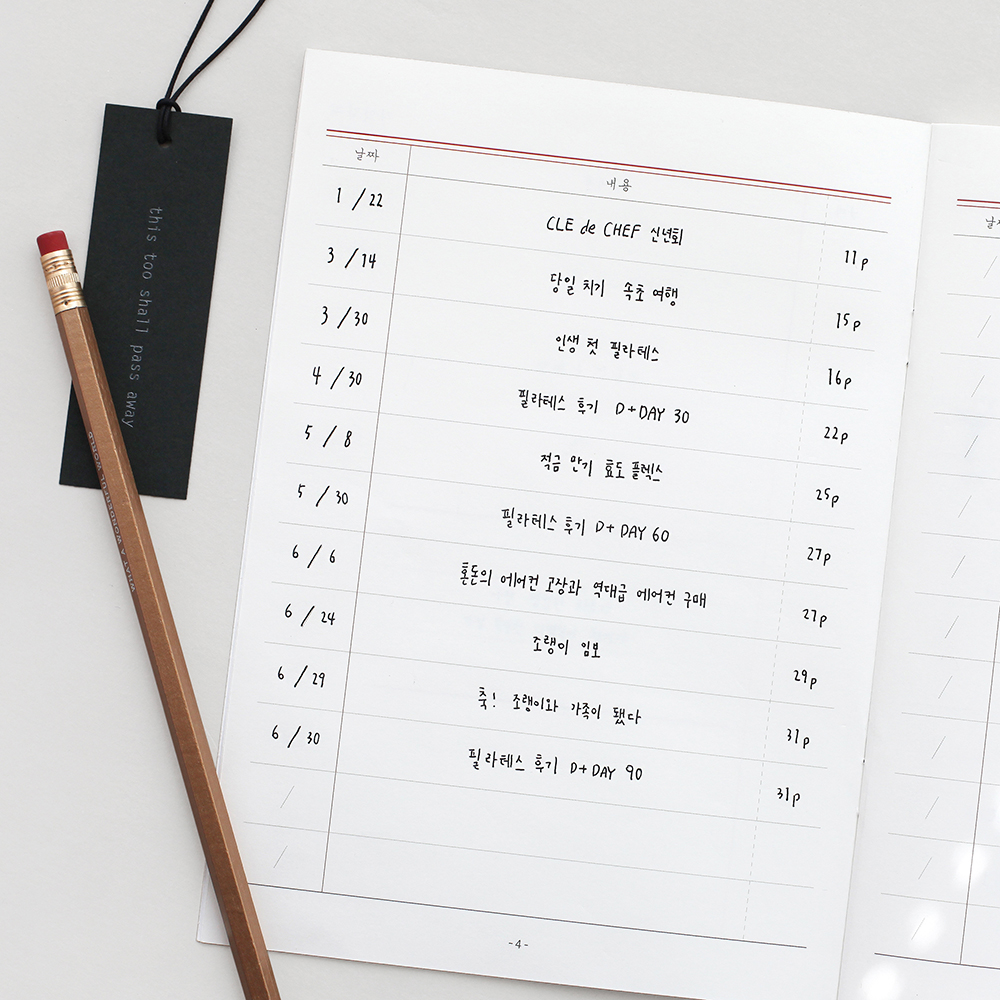 this too shall pass away
WHAT A WONDERFUL WORLD
날짜 내용
1 / 22 CLE de CHEF 신년회 11p
3 / 14 당일치기 속초 여행 15p
3 / 30 인생 첫 필라테스 16p
4 / 30 필라테스 후기 D+DAY 30 22p
5 / 8 적금 만기 효도 플렉스 25p
5 / 30 필라테스 후기 D+DAY 60 27p
6 / 6 혼돈의 에어컨 고장과 역대급 에어컨 구매 27p
6 / 24 조랭이 임보 29p
6 / 29 축! 조랭이와 가족이 됐다 31p
6 / 30 필라테스 후기 D+DAY 90 31p
/
/
-4-